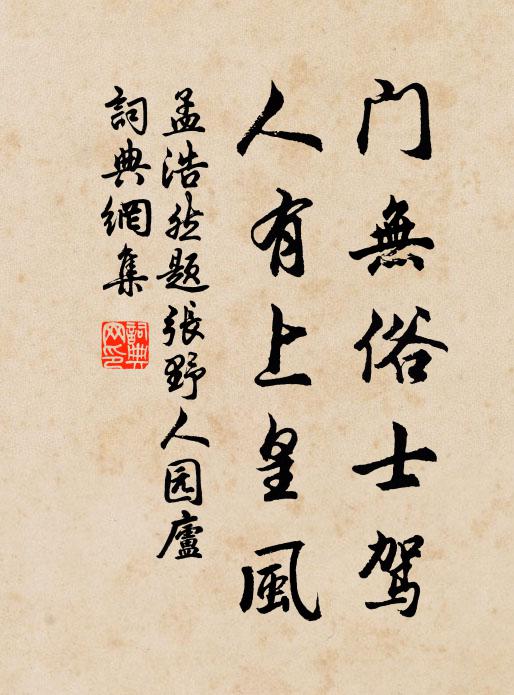 门無俗士驾
人有上皇風
孟浩然题張野人园廬
詞典網集
詞典网印